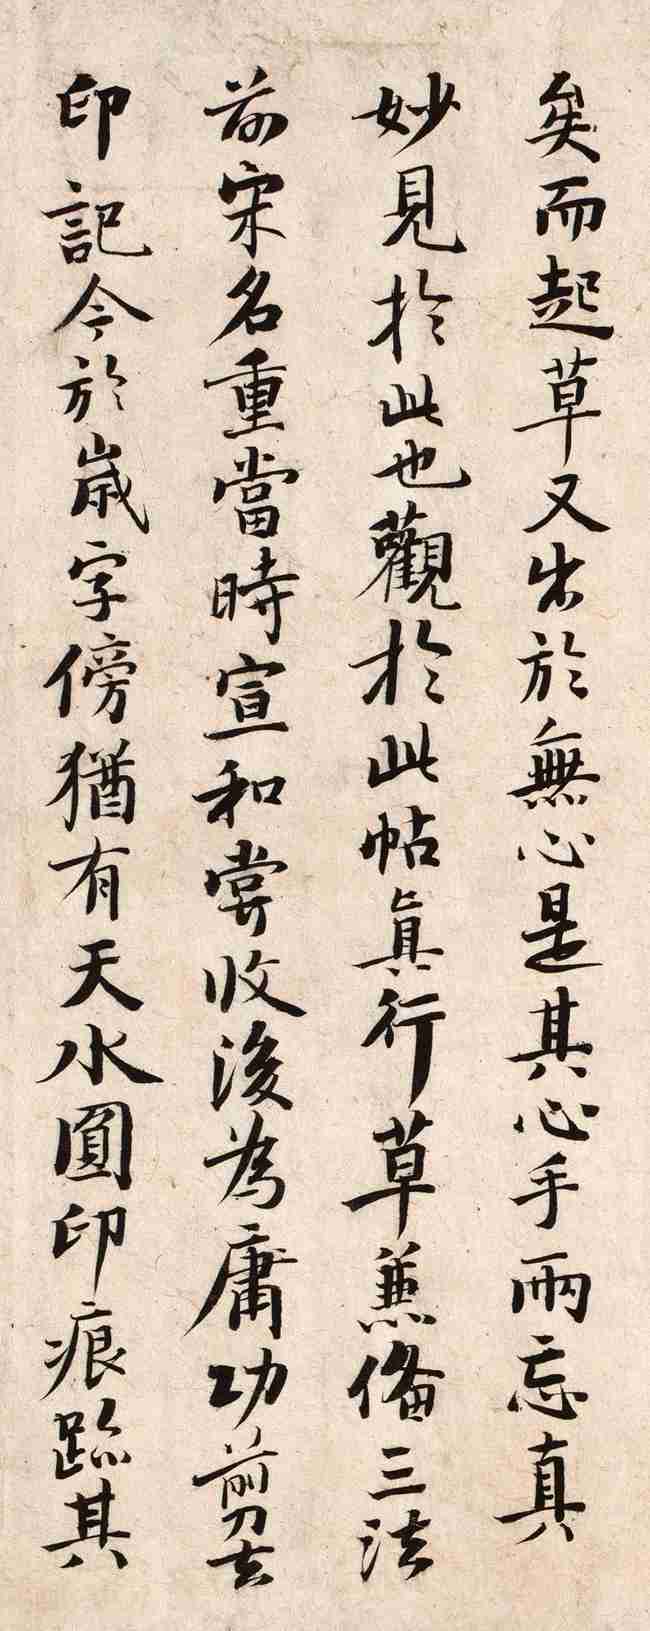 矣而起草又出於無心是其心手兩忘真
妙見於此也觀於此帖真行草兼備三法
前宋名重當時宣和嘗收後為庸功剪去
印記今於歲字傍猶有天水圓印痕跡其